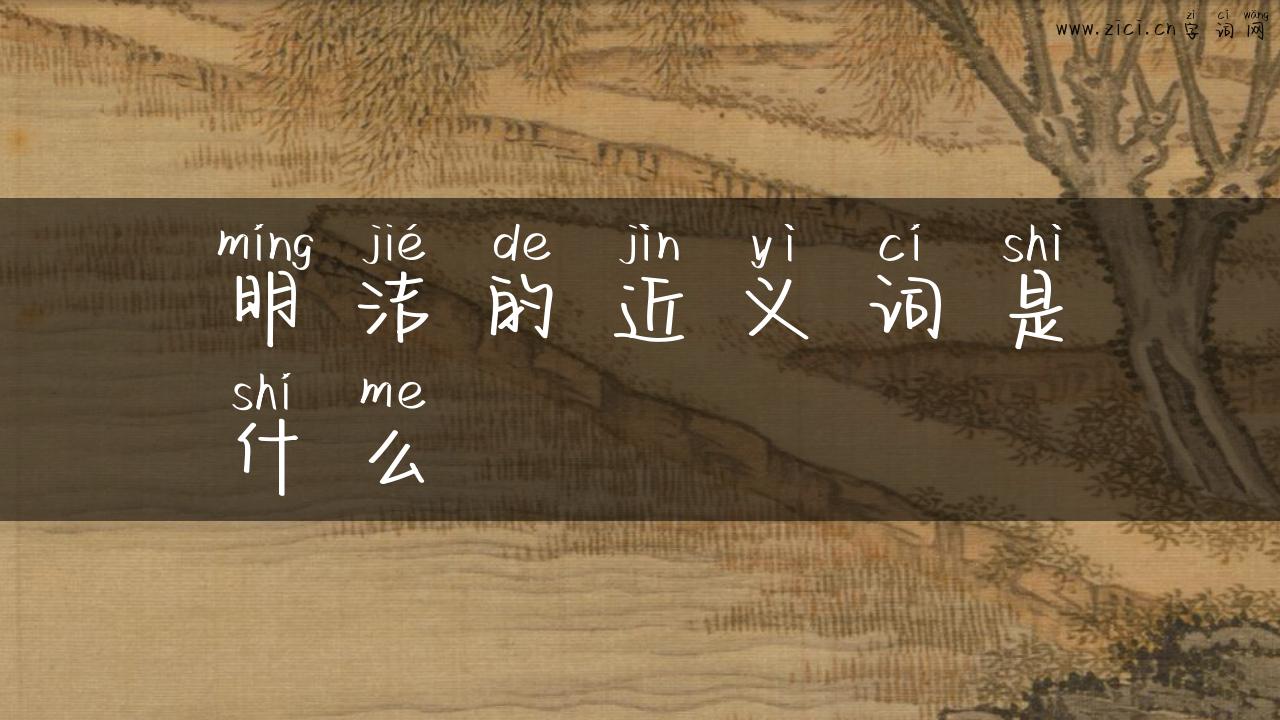 zì cí wǎng
www.zici.cn字词网
míng jié de jìn yì cí shì
明洁的近义词是
shí me
什么